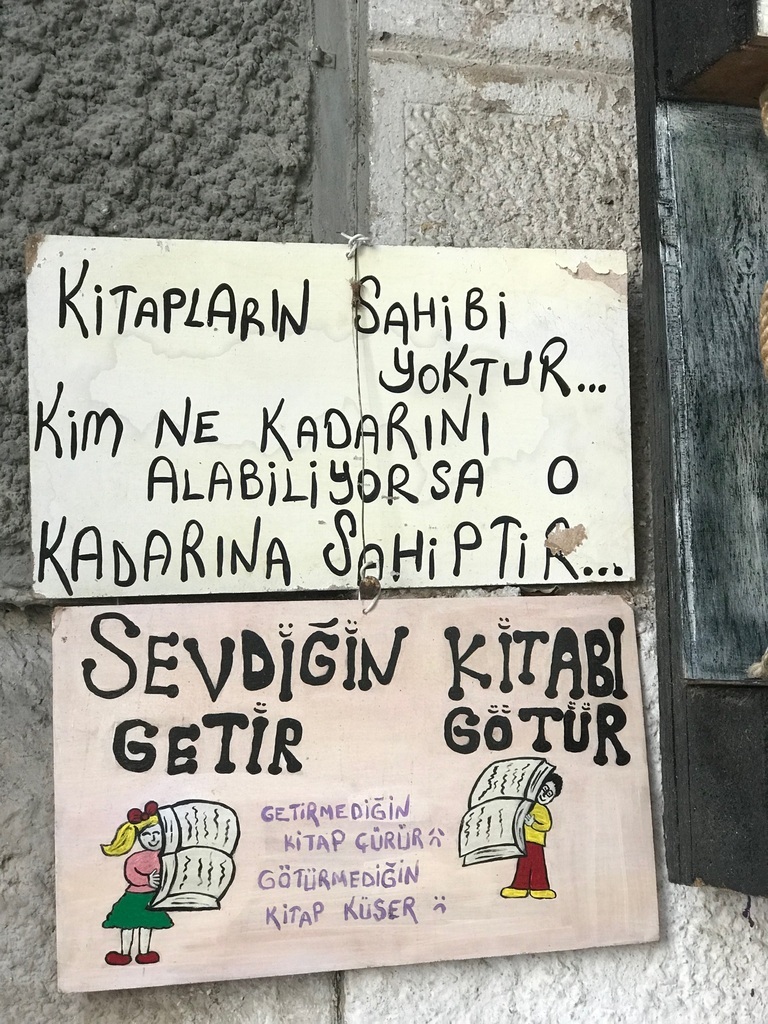 KİTAPLARIN SAHİBİ
YOKTUR...
KİM NE KADARINI
ALABİLİYORSA O
KADARINA SAHİPTİR...
SEVDİĞİN KİTABI
GETİR GÖTÜR
GETİRMEDİĞİN
KİTAP ÇÜRÜR :(
GÖTÜRMEDİĞİN
KİTAP KÜSER :(